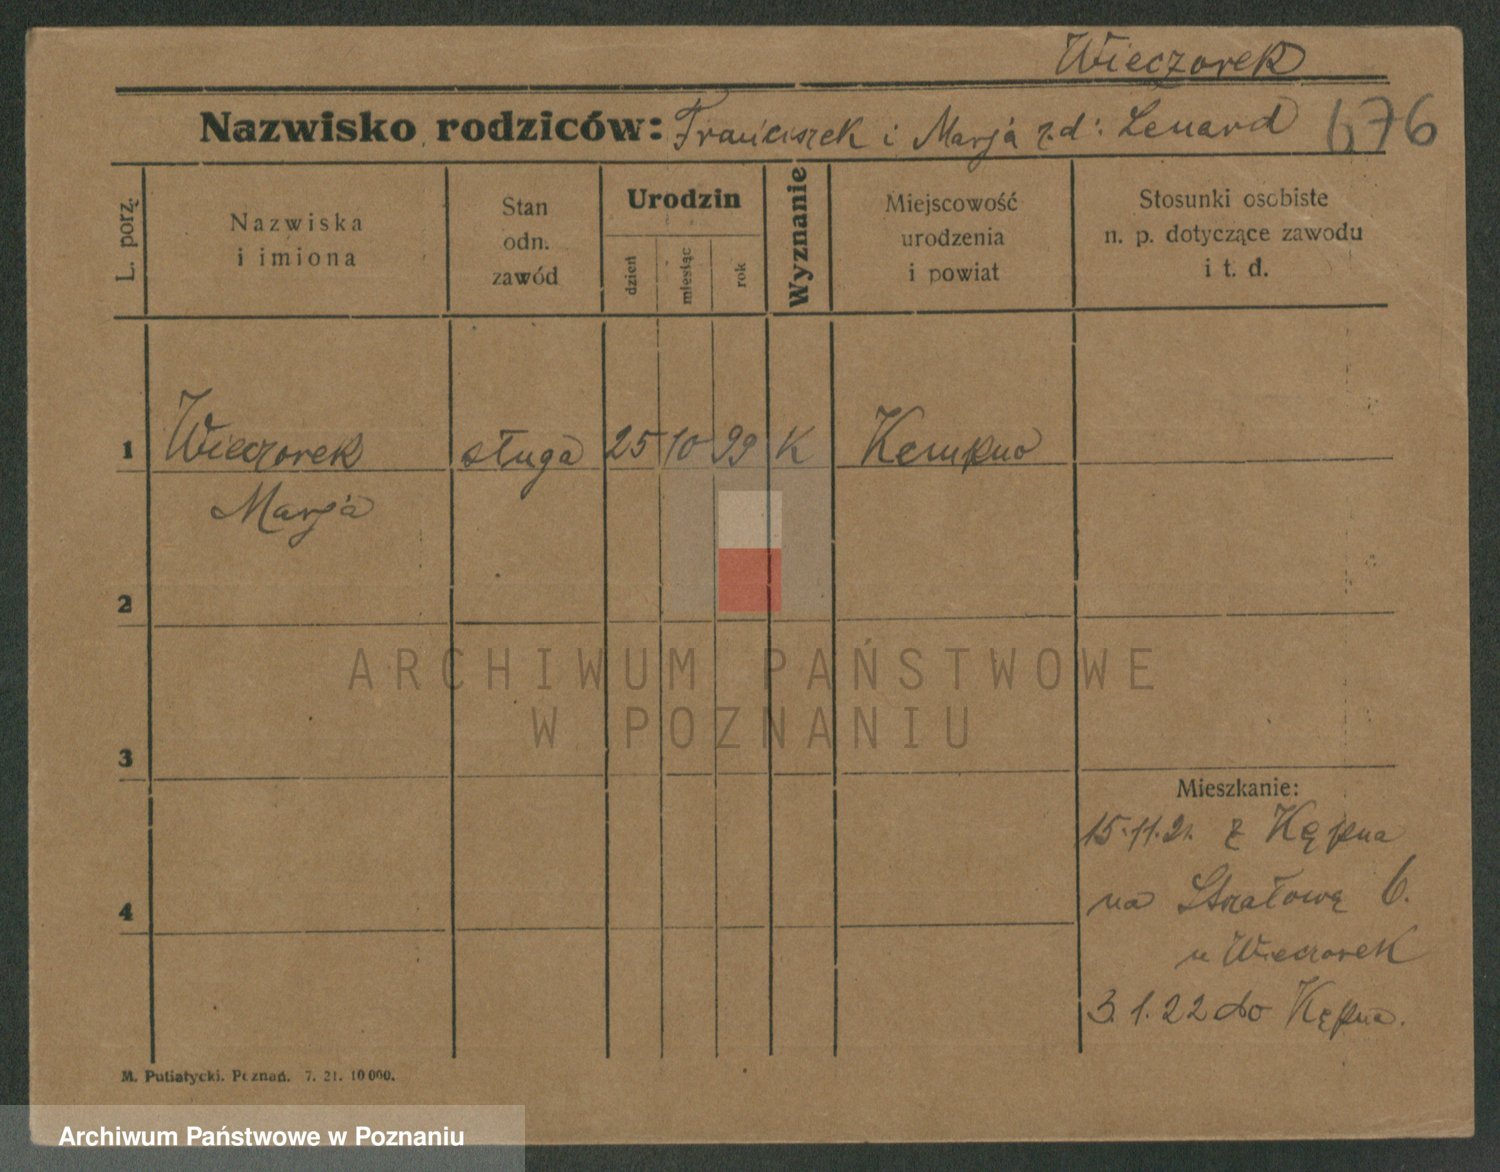 Wieczorek
Nazwisko rodziców: Franciszek i Marja z.d: Lenard 676
L. porz.
Nazwiska
i imiona
Stan
odn.
zawód
Urodzin
dzień
miesiąc
rok
Wyznanie
Miejscowość
urodzenia
i powiat
Stosunki osobiste
n. p. dotyczące zawodu
i t. d.
1 Wieczorek sługa 25 10 99 K Kempno
Marja
2
3
4
Mieszkanie:
15.11.21. z Kępna
na Strzałową 6.
u Wieczorek
3.1.22 do Kępna.
M. Putiatycki. Poznań. 7. 21. 10 000.
ARCHIWUM PAŃSTWOWE
W POZNANIU
Archiwum Państwowe w Poznaniu